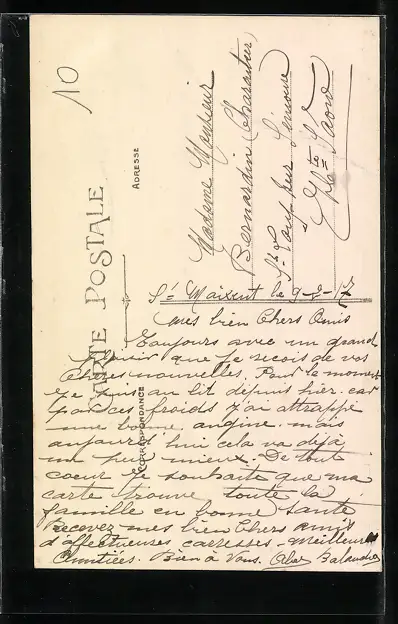 10
CARTE POSTALE
ADRESSE
CORRESPONDANCE
Madame Monsieur
Bernardin Charautier
St Loup sur Semouse
Hte Saone
St Maixent le 9-2-17
Mes bien Chers Amis
Toujours avec un grand
plaisir que je recois de vos
Chères nouvelles. Pour le moment
je suis au lit depuis hier car
par ces froids j'ai attrappé
une bonne angine mais
aujourd'hui cela va déjà
un peu mieux. De tout
coeur je souhaite que ma
carte trouve toute la
famille en bonne santé
Recevez mes bien Chers amis
d'affectueuses caresses - Meilleures
Amitiées. Bien à Vous.